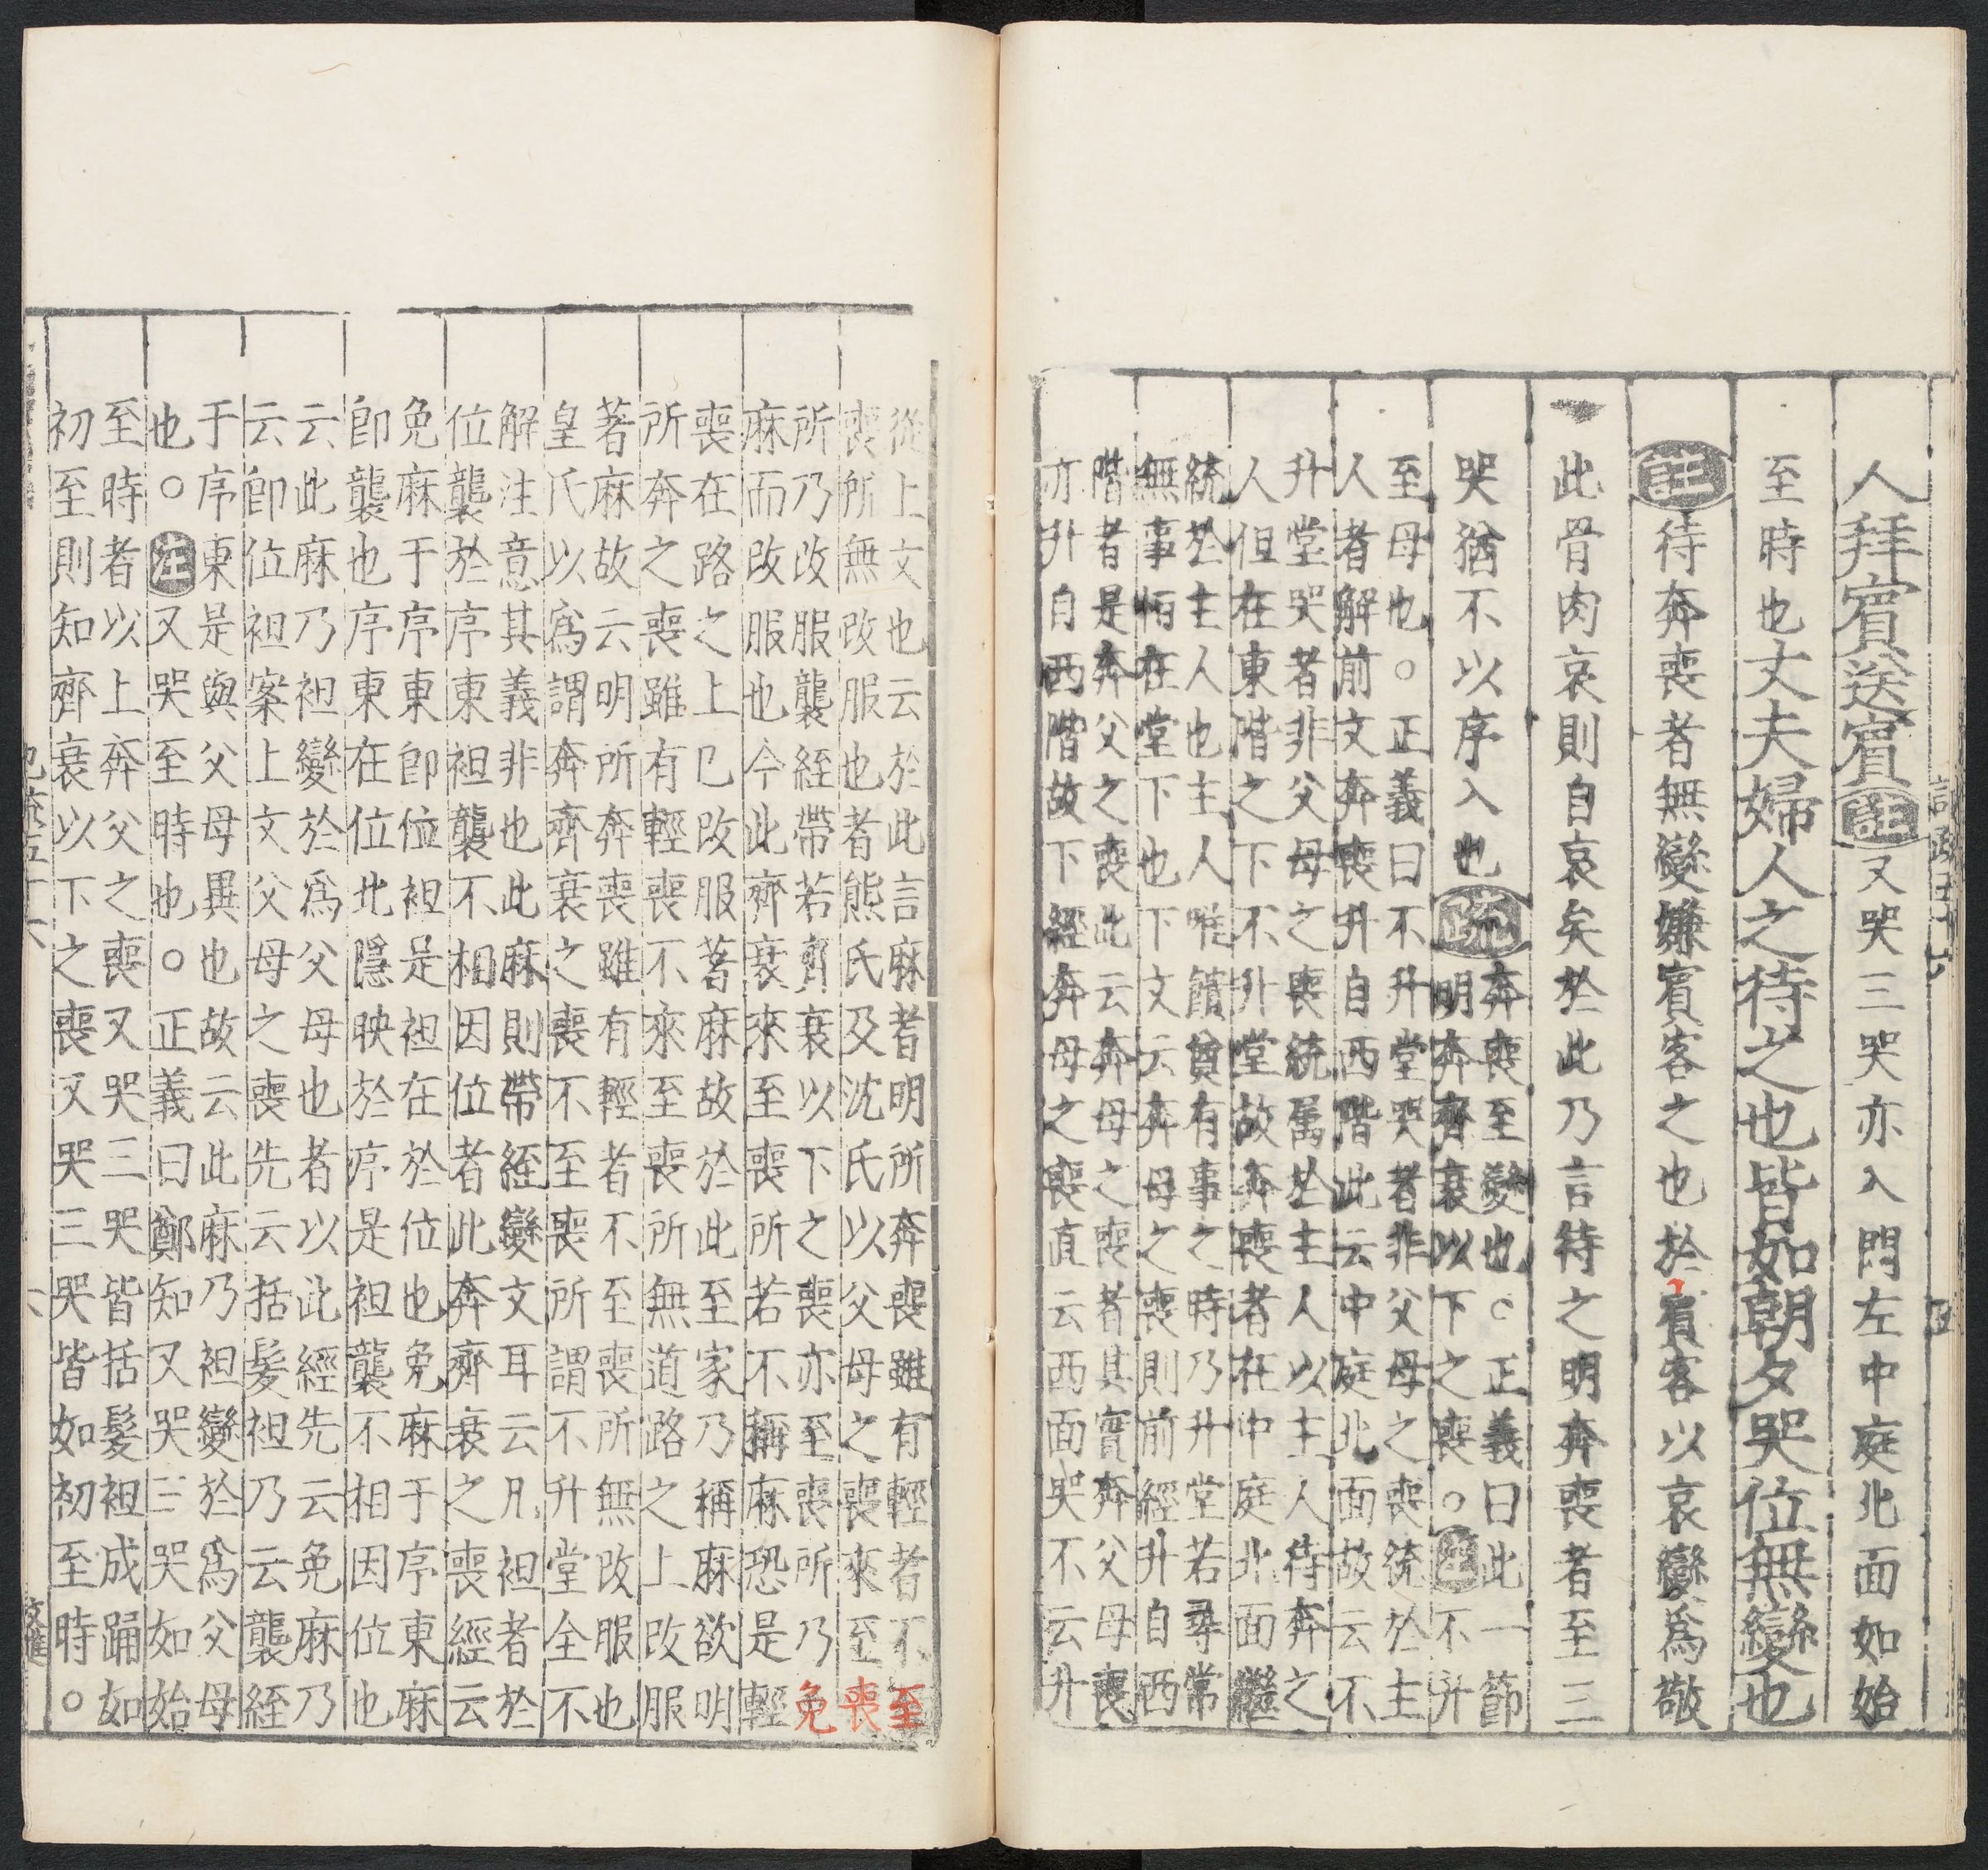 人拜賓送賓注又哭三哭亦入門左中庭北面如始
至時也丈夫婦人之待之也皆如朝夕哭位無變也
注待奔喪者無變嫌賓客之也於賓客以哀變爲敬
此骨肉哀則自哀矣於此乃言待之明奔喪者至三
哭猶不以序入也疏奔喪至變也○正義曰此一節
明奔齊衰以下之喪○注不升
至母也○正義曰不升堂哭者非父母之喪統於主
人者解前文奔喪升自西階此云中庭北面故云不
升堂哭者非父母之喪統屬於主人以主人待奔之
人但在東階之下不升堂故奔喪者在中庭北面繼
統於主人也主人唯饋奠有事之時乃升堂若尋常
無事怕在堂下也下文云奔母之喪則前經升自西
階者是奔父之喪此云奔母之喪者其實奔父母喪
亦升自西階故下經奔母之喪直云西面哭不云升
從上文也云於此言麻者明所奔喪雖有輕者不至
喪所無改服也者熊氏及沈氏以父母之喪來至喪
所乃改服襲絰帶若齊衰以下之喪亦至喪所乃免
麻而改服也今此齊衰來至喪所若不稱麻恐是輕
喪在路之上已改服著麻故於此至家乃稱麻欲明
所奔之喪雖有輕喪不來至喪所無道路之上改服
著麻故云明所奔喪雖有輕者不至喪所無改服也
皇氏以爲謂奔齊衰之喪不至喪所謂不升堂全不
解注意其義非也此麻則帶絰變文耳云凡袒者於
位襲於序東袒襲不相因位者此奔齊衰之喪經云
免麻于序東即位袒是袒在於位也免麻于序東麻
即襲也序東在位北隱映於序是袒襲不相因位也
云此麻乃袒變於爲父母也者以此經先云免麻乃
云即位袒案上文父母之喪先云括髮袒乃云襲絰
于序東是與父母異也故云此麻乃袒變於爲父母
也○注又哭至時也○正義曰鄭知又哭三哭如始
至時者以上奔父之喪又哭三哭皆括髮袒成踊如
初至則知齊衰以下之喪又哭三哭皆如初至時○